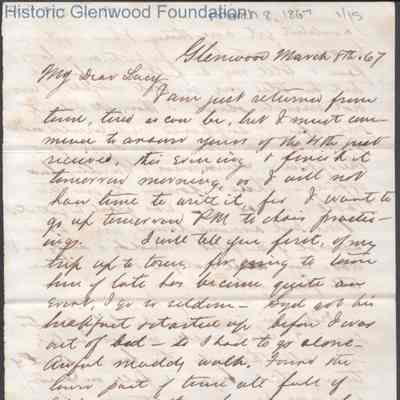 Historic Glenwood Foundation
March 8, 1867 1/15
Glenwood March 8th. 67
My Dear Lucy
I am just returned from
town, tired as can be, but I must com-
mence to answer yours of the 4th just
received, this evening & finish it
tomorrow morning, or I will not
have time to write it, for I want to
go up tomorrow P.M to choir practic-
ings. I will tell you first, of my
trip up to town, for going to town
has of late become quite an
event, I go so seldom -
breakfast & started up before I was
out of bed - so I had to go alone -
Awful muddy walk. Found the
lower part of town all full of